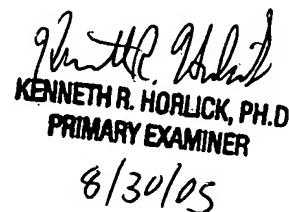 Kenneth R. Horlick
KENNETH R. HORLICK, PH.D
PRIMARY EXAMINER
8/30/05